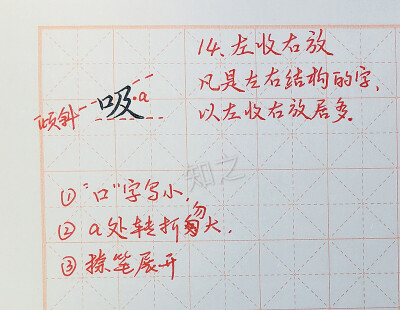 14、左收右放
凡是左右结构的字,
以左收右放居多.
倾斜 吸 a
知之
① “口”字写小,
② a处转折勿大.
③ 捺笔展开